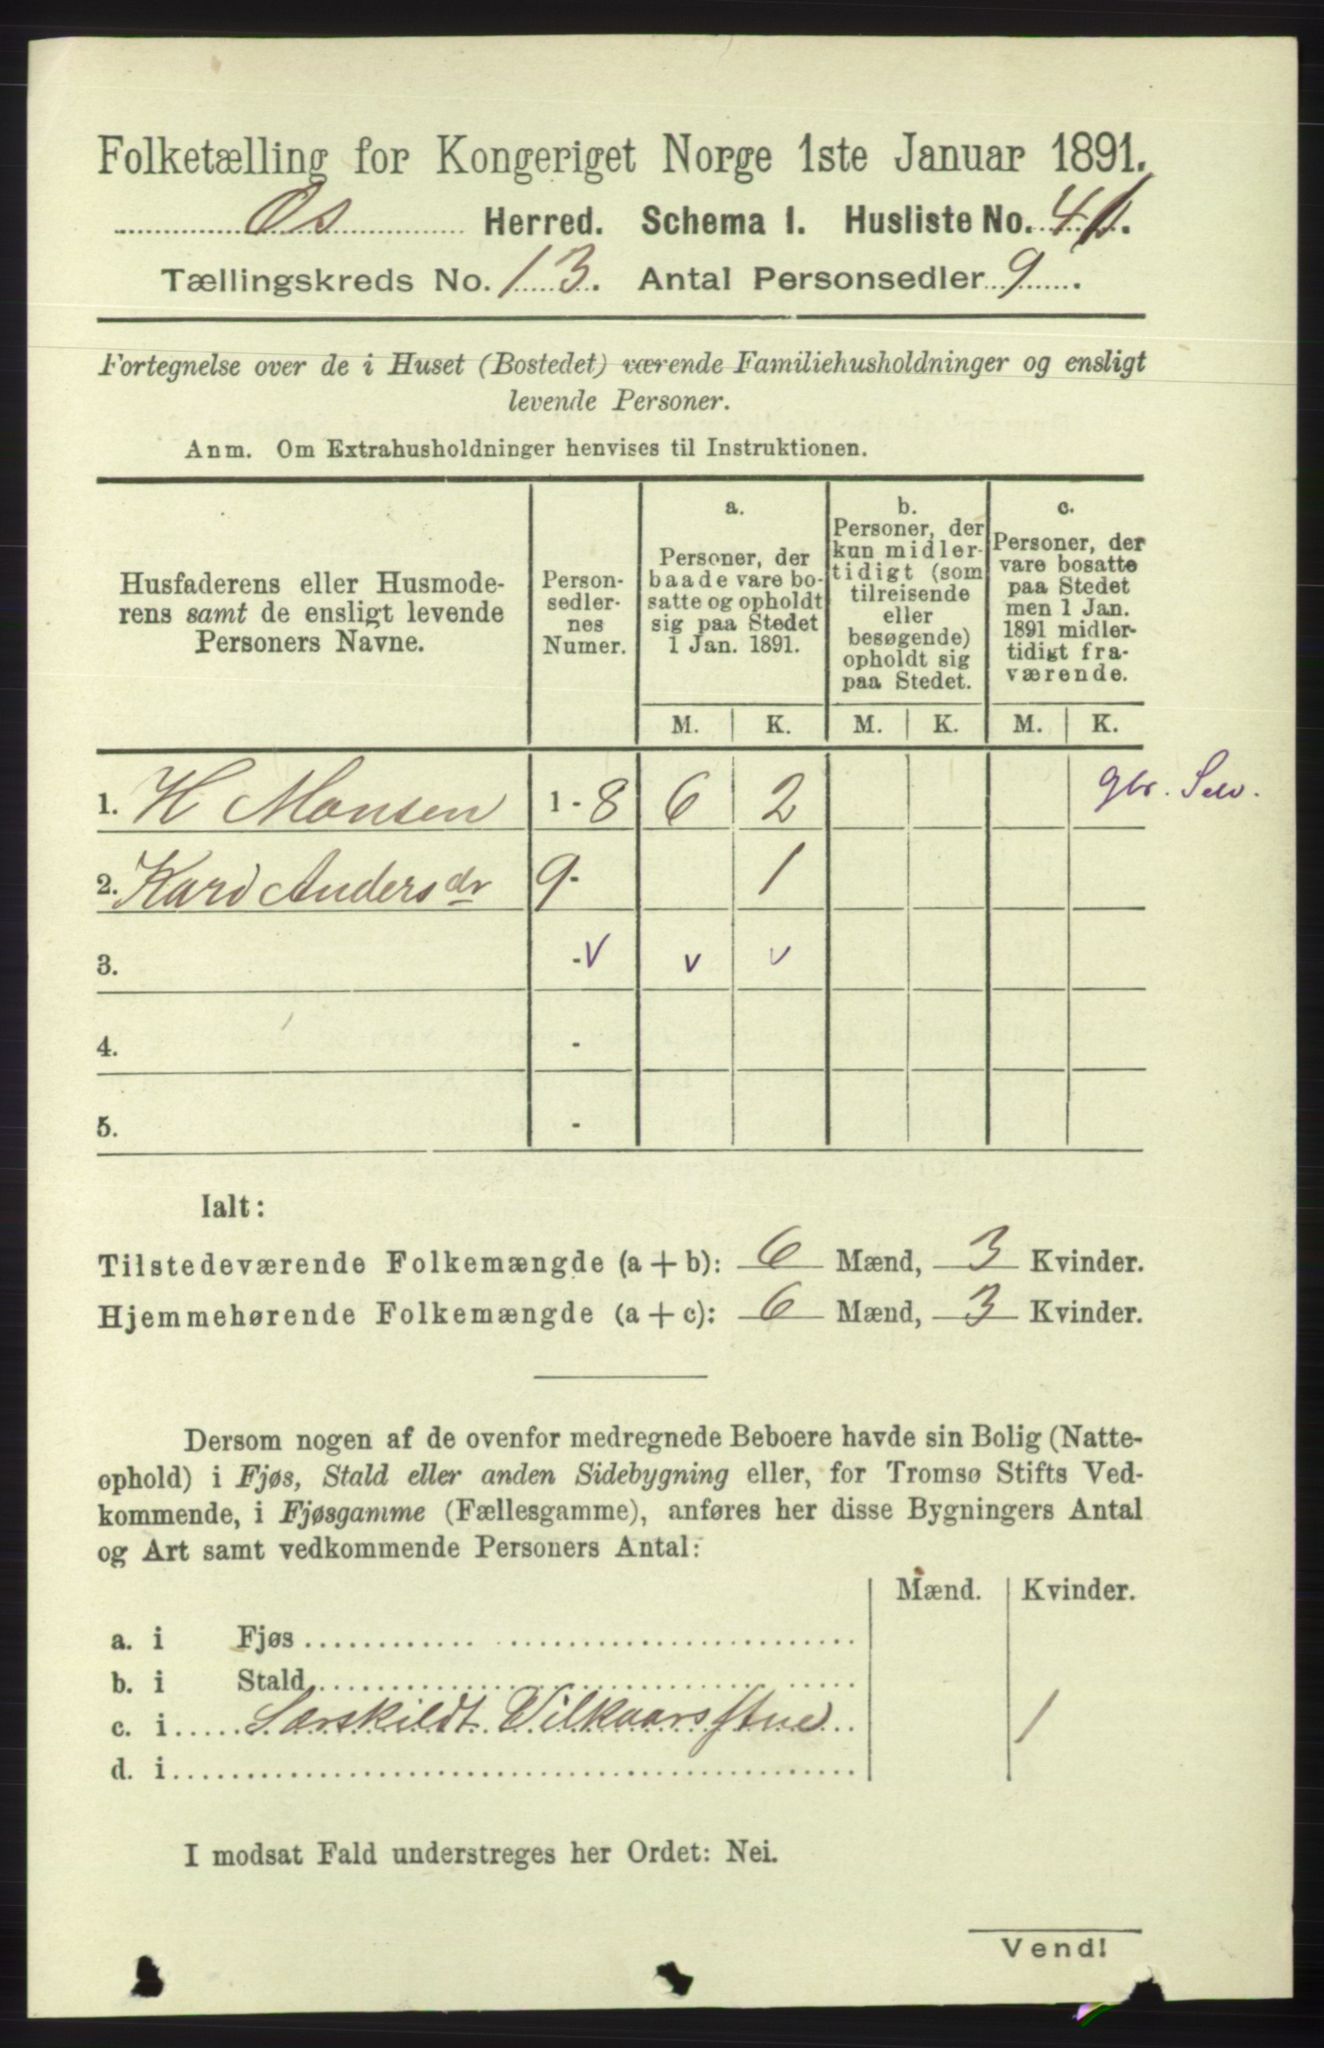 Folketælling for Kongeriget Norge 1ste Januar 1891.
Os Herred. Schema I. Husliste No. 41.
Tællingskreds No. 13. Antal Personsedler 9.
Fortegnelse over de i Huset (Bostedet) værende Familiehusholdninger og ensligt
levende Personer.
Anm. Om Extrahusholdninger henvises til Instruktionen.
Husfaderens eller Husmode-
rens samt de ensligt levende
Personers Navne.
Person-
sedler-
nes
Numer.
a.
Personer, der
baade vare bo-
satte og opholdt
sig paa Stedet
1 Jan. 1891.
b.
Personer, der
kun midler-
tidigt (som
tilreisende
eller
besøgende)
opholdt sig
paa Stedet.
c.
Personer, der
vare bosatte
paa Stedet
men 1 Jan.
1891 midler-
tidigt fra-
værende.
M. K. M. K. M. K.
1. H Monsen 1 - 8 6 2 gbr. Selv.
2. Kari Andersdr 9- 1
3. - v v v
4. -
5. -
Ialt:
Tilstedeværende Folkemængde (a + b): 6 Mænd, 3 Kvinder.
Hjemmehørende Folkemængde (a + c): 6 Mænd, 3 Kvinder.
Dersom nogen af de ovenfor medregnede Beboere havde sin Bolig (Natte-
ophold) i Fjøs, Stald eller anden Sidebygning eller, for Tromsø Stifts Ved-
kommende, i Fjøsgamme (Fællesgamme), anføres her disse Bygningers Antal
og Art samt vedkommende Personers Antal:
Mænd. Kvinder.
a. i Fjøs
b. i Stald
c. i Særskildt Vilkaarsstue 1
d. i
I modsat Fald understreges her Ordet: Nei.
Vend!